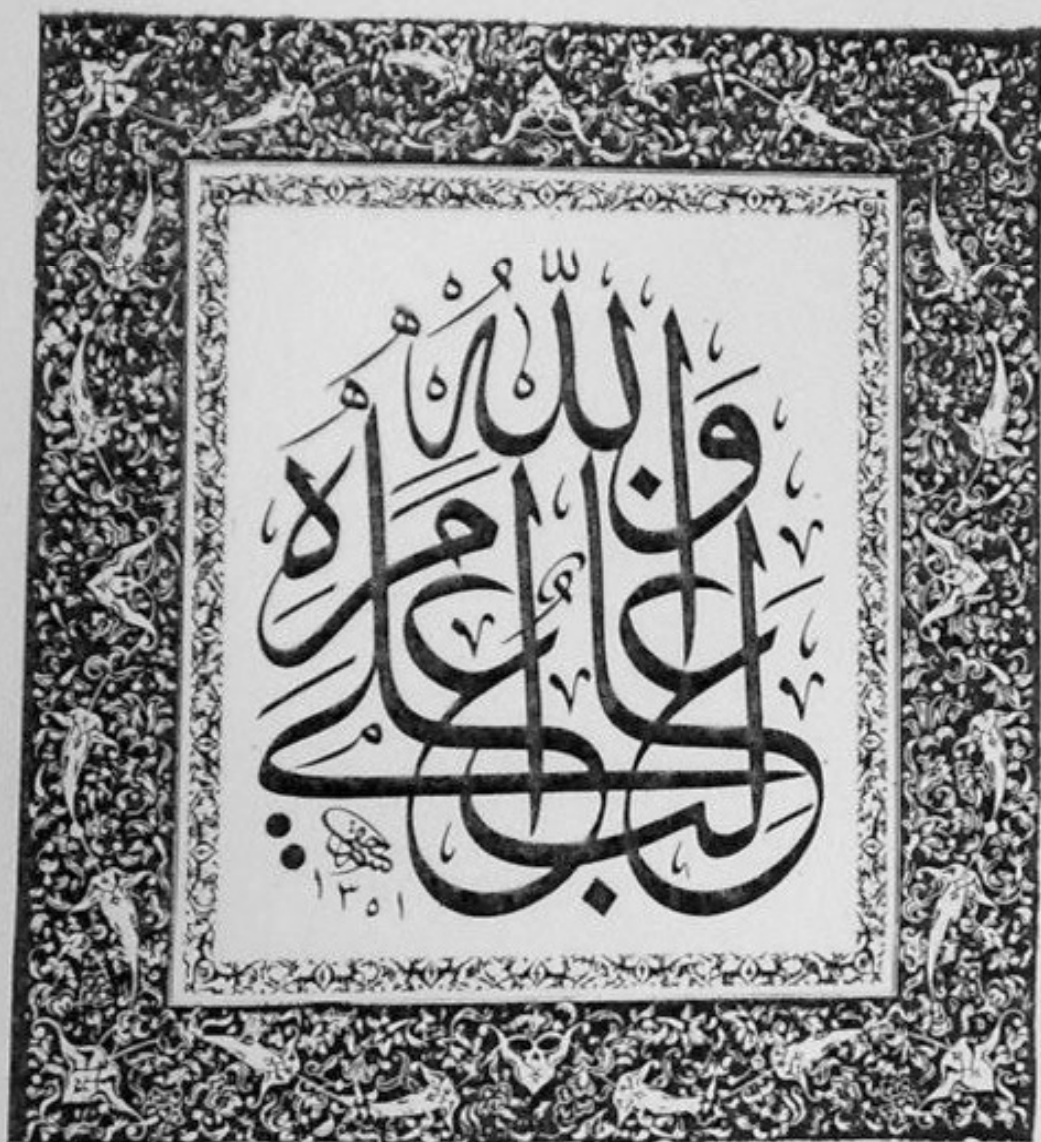 وَاللّهُ غَالِبٌ عَلَي أَمْرِهِ
١٣٥١